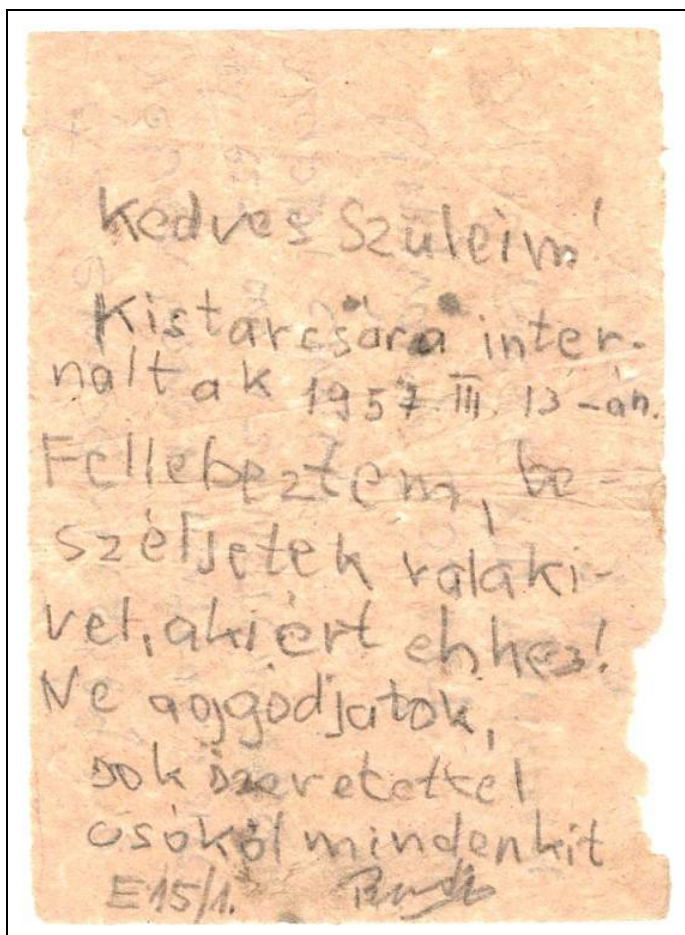 Kedves Szüleim!
Kistarcsára inter-
náltak 1957. III. 13-án.
Fellebeztem, be-
széljetek valaki-
vel, aki ért ehhez!
Ne aggódjatok,
sok szeretettel
csókol mindenkit
E 15/1.